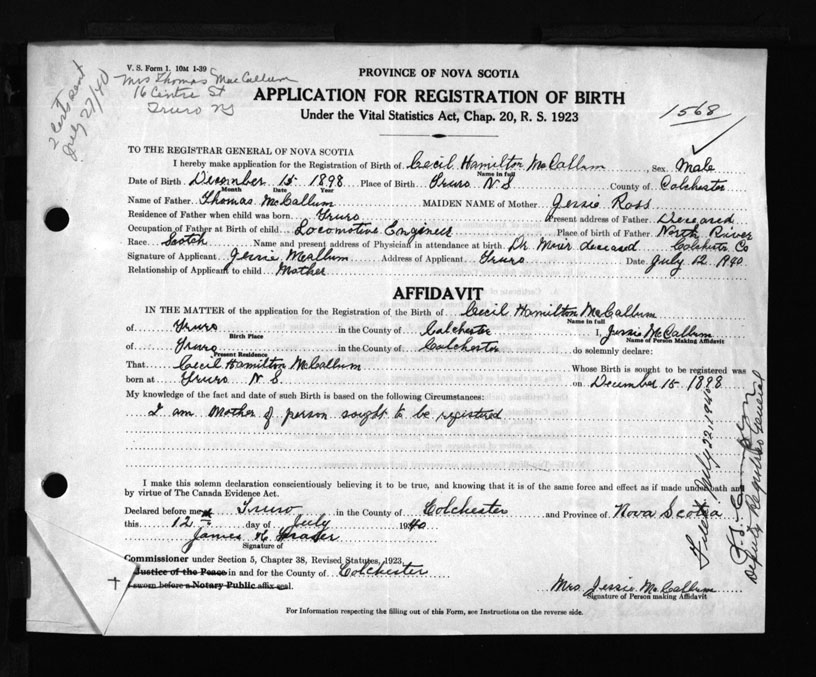 V. S. Form 1. 10M 1-39
Mrs Thomas MacCallum
16 Centre St
Truro NS
July 27/40
PROVINCE OF NOVA SCOTIA
APPLICATION FOR REGISTRATION OF BIRTH
Under the Vital Statistics Act, Chap. 20, R. S. 1923
1568
TO THE REGISTRAR GENERAL OF NOVA SCOTIA
I hereby make application for the Registration of Birth of Cecil Hamilton McCallum Sex Male
Name in full
Date of Birth December 15 1898 Place of Birth Truro N S County of Colchester
Month Date Year
Name of Father Thomas McCallum MAIDEN NAME of Mother Jessie Ross
Residence of Father when child was born Truro Present address of Father Deceased
Occupation of Father at Birth of child Locomotive Engineer Place of birth of Father North River
Race Scotch Name and present address of Physician in attendance at birth Dr. Muir deceased Colchester Co
Signature of Applicant Jessie McCallum Address of Applicant Truro Date July 12 1940
Relationship of Applicant to child Mother
AFFIDAVIT
IN THE MATTER of the application for the Registration of the Birth of Cecil Hamilton McCallum
Name in full
of Truro in the County of Colchester I, Jessie McCallum
Birth Place Name of Person Making Affidavit
of Truro in the County of Colchester do solemnly declare:
Present Residence
That Cecil Hamilton McCallum Whose Birth is sought to be registered was
born at Truro N. S. on December 15 1898
My knowledge of the fact and date of such Birth is based on the following Circumstances:
I am Mother of person sought to be registered
I make this solemn declaration conscientiously believing it to be true, and knowing that it is of the same force and effect as if made under oath and
by virtue of The Canada Evidence Act.
Declared before me at Truro in the County of Colchester and Province of Nova Scotia
this 12 day of July 1940
James H Fraser
Signature of
Commissioner under Section 5, Chapter 38, Revised Statutes, 1923,
Justice of the Peace in and for the County of Colchester
If sworn before a Notary Public affix seal.
Mrs. Jessie McCallum
Signature of Person making Affidavit
For Information respecting the filling out of this Form, see Instructions on the reverse side.
Filed July 22, 1940
Deputy Registrar General